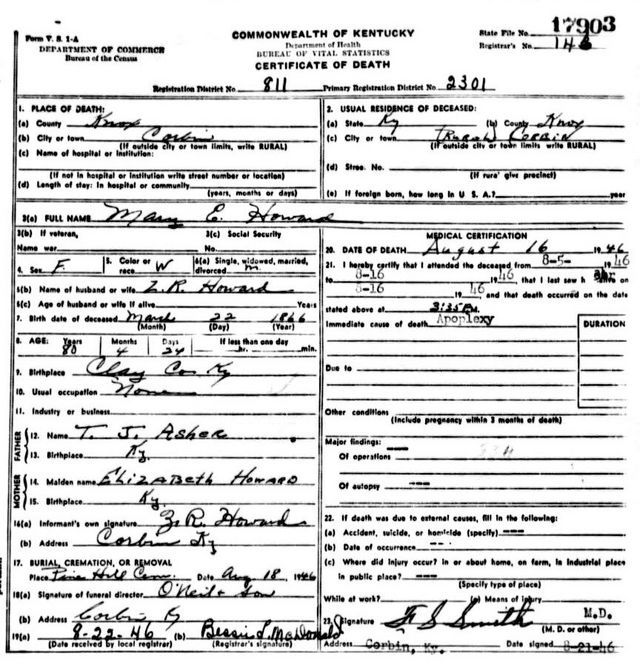 Form V. S. 1-A
DEPARTMENT OF COMMERCE
Bureau of the Census
COMMONWEALTH OF KENTUCKY
Department of Health
BUREAU OF VITAL STATISTICS
CERTIFICATE OF DEATH
State File No. 17903
Registrar's No. 146
Registration District No. 811 Primary Registration District No. 2301
1. PLACE OF DEATH:
(a) County Knox
(b) City or town Corbin
(If outside city or town limits, write RURAL)
(c) Name of hospital or institution:
(If not in hospital or institution write street number or location)
(d) Length of stay: In hospital or community
(years, months or days)
2. USUAL RESIDENCE OF DECEASED:
(a) State Ky (b) County Knox
(c) City or town (Rural) Corbin
(If outside city or town limits write RURAL)
(d) Stree. No.
(If rura' give precinct)
(e) If foreign born, how long in U. S. A.? year
3(a) FULL NAME Mary E. Howard
3(b) If veteran, Name war
3(c) Social Security No.
4. Sex F. 5. Color or race W 6(a) Single, widowed, married, divorced m
6(b) Name of husband or wife Z. R. Howard
6(c) Age of husband or wife if alive Years
7. Birth date of deceased March 22 1866
(Month) (Day) (Year)
8. AGE: Years 80 Months 4 Days 24 If less than one day hr. min.
9. Birthplace Clay Co. Ky
10. Usual occupation None
11. Industry or business
FATHER
12. Name T. J. Asher
13. Birthplace Ky.
MOTHER
14. Maiden name Elizabeth Howard
15. Birthplace Ky
16(a) Informant's own signature Z. R. Howard
(b) Address Corbin Ky
17. BURIAL, CREMATION, OR REMOVAL
Place Pine Hill Cem. Date Aug 18, 1946
18(a) Signature of funeral director O'Neil & Son
(b) Address Corbin Ky
19(a) 8-22-46 (b) Bessie L. McDonald
(Date received by local registrar) (Registrar's signature)
MEDICAL CERTIFICATION
20. DATE OF DEATH August 16 1946
21. I hereby certify that I attended the deceased from 8-5-
to 8-16 1946, that I last saw her alive on
8-16 1946 and that death occurred on the date
stated above at 3:35PM.
Immediate cause of death Apoplexy
DURATION
Due to
Other conditions
(Include pregnancy within 3 months of death)
Major findings:
Of operations --
Of autopsy ---
22. If death was due to external causes, fill in the following:
(a) Accident, suicide, or homicide (specify) ---
(b) Date of occurrence ---
(c) Where did injury occur? in or about home, on farm, in industrial place
in public place? ---
(Specify type of place)
While at work? (e) Means of injury
23. Signature F S Smith M.D.
(M. D. or other)
Address Corbin, Ky. Date signed 8-21-46